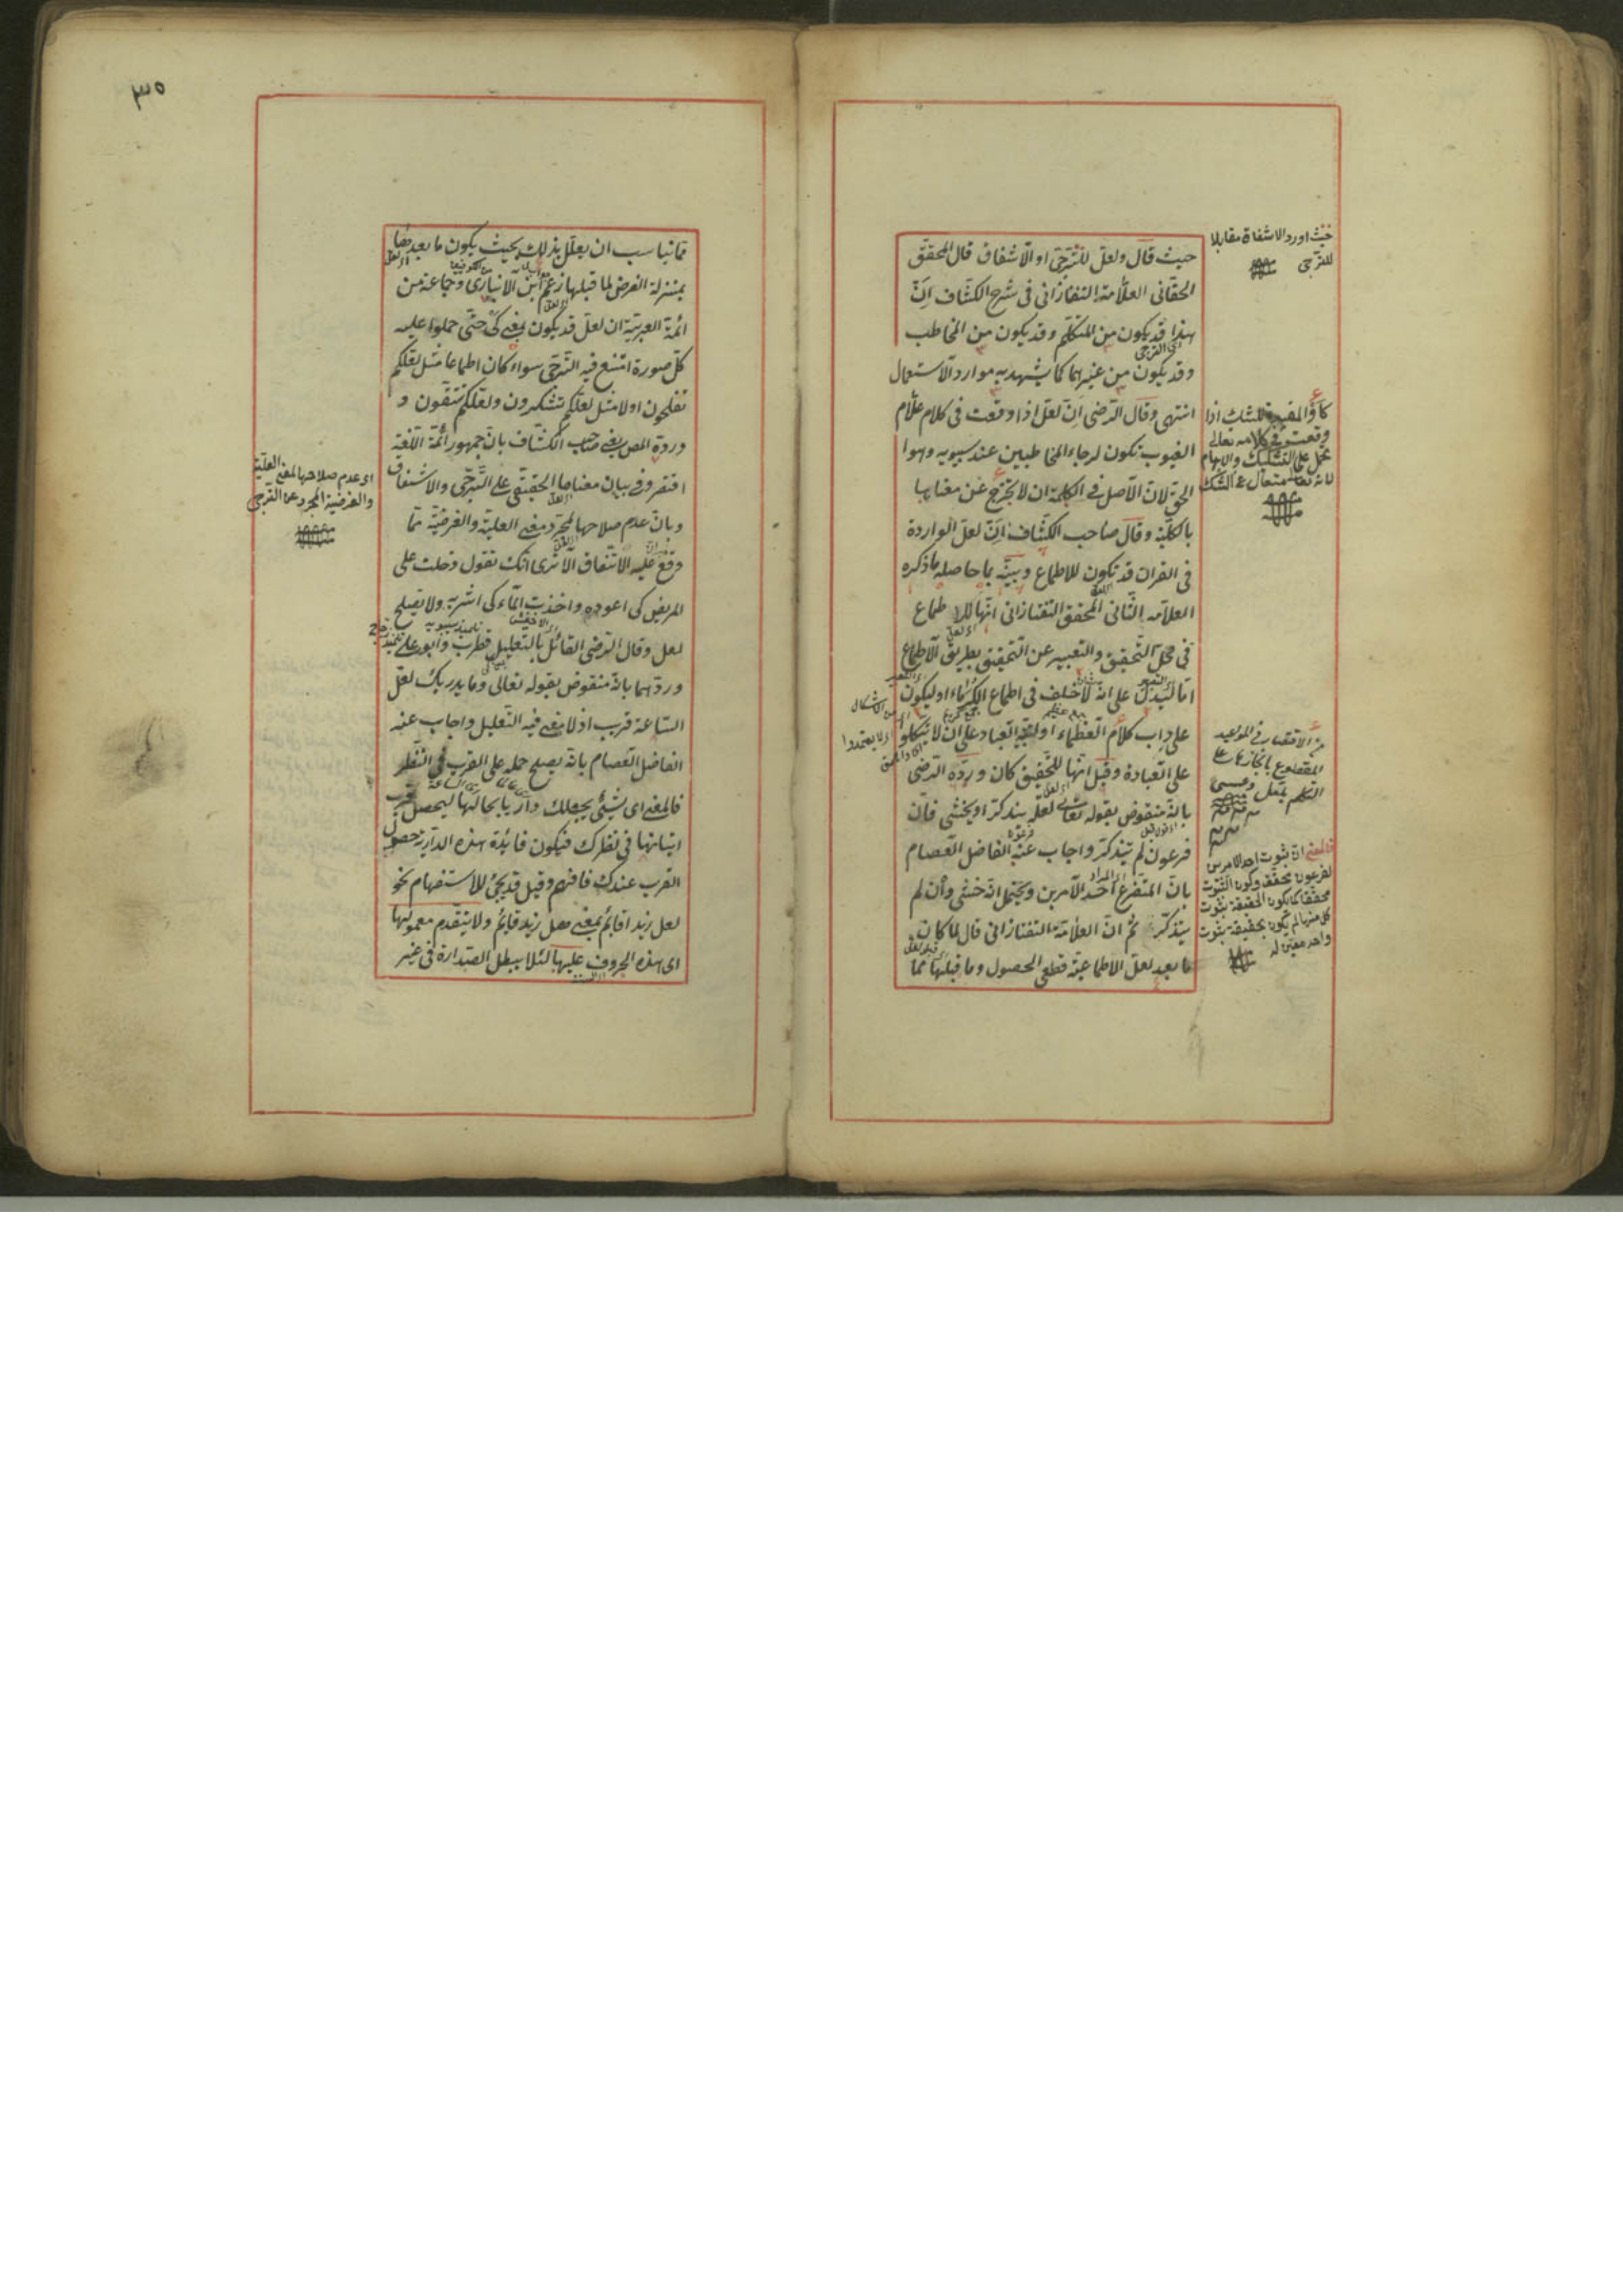 حيث قال ولعل للترجى او الاشفاق قال المحقق
الحقانى العلامة التفتازانى فى شرح الكشاف انّ
هذا قد يكون من المتكلم وقد يكون من المخاطب
وقد يكون من غيرهما كما يشهد به موارد الاستعمال
انتهى وقال الرضى انّ لعل اذا وقعت فى كلام علام
الغيوب تكون لرجاء المخاطبين عند سيبويه وهوا
الحق لان الاصل فى الكلمة ان لا يخرج عن معناها
بالكلية وقال صاحب الكشاف انّ لعل الواردة
فى القران قد تكون للاطماع وبينه بما حاصله ما ذكره
العلامه الثانى المحقق التفتازانى انها للا طماع
فى محل التحقيق والتعبير عن التحقيق بطريق الاطماع
اما ليدل على انه لا خلف فى اطماع الكرماء او ليكون
على داب كلام العظماء او لتنبيه العباد على ان لا يتكلوا
على العبادة وقيل انها للتحقيق كان ورده الرضى
بانه منقوض بقوله تعالى لعله يتذكر او يخشى فان
فرعون لم يتذكر واجاب عنه الفاضل العصام
بان المتفرع احد الامرين ويحتمل انه خشى وان لم
يتذكر ثم ان العلامة التفتازانى قال لما كان
ما بعد لعل الاطماعية قطعى الحصول وما قبلها مما
حيث اورد الاشفاق مقابلا
للترجى
كأو المفيدة للشك اذا
وقعت فى كلامه تعالى
تحمل على التشكيك والابهام
لانه تعالى متعال عن الشك
من الاقتصار فى المواعيد
المقطوع بانجازها على
التكلم بلعل وعسى
فالمعنى ان ثبوت احد الامرين
لفرعون محقق وكون الثبوت
واحد معين له
٣٥
مما يناسب ان يعلل بذلك بحيث يكون ما بعدها
بمنزلة الغرض لما قبلها زعم ابن الانبارى وجماعة من
ائمة العربية ان لعل قد يكون بمعنى كى حتى حملوا عليه
كل صورة امتنع فيه الترجى سواء كان اطماعا مثل لعلكم
تفلحون اولا مثل لعلكم تشكرون ولعلكم تتقون و
ورده المص يعنى صاحب الكشاف بان جمهور ائمة اللغة
اقتصروا فى بيان معناها الحقيقى على الترجى والاشفاق
وبان عدم صلاحها لمجرد معنى العلية والغرضية مما
وقع عليه الاتفاق الا ترى انك تقول دخلت على
المريض كى اعوده واخذت الماء كى اشربه ولا تصلح
لعل وقال الرضى القائل بالتعليل قطرب وابو على
وردهما بانه منقوض بقوله تعالى وما يدريك لعل
الساعة قريب اذ لا معنى فيه التعليل واجاب عنه
الفاضل العصام بانه يصلح حمله على القرب فى النظر
فالمعنى اى شئ يجعلك داريا بحالها ليحصل قرب
اتيانها فى نظرك فيكون فائدة هذه الدارية حصول
القرب عندك فافهم وقيل قد يجئ للاستفهام نحو
لعل زيدا قائم بمعنى هل زيد قائم ولا يتقدم معمولها
اى هذه الحروف عليها لئلا يبطل الصدارة فى غير
اى عدم صلاحها لمعنى العلية
والغرضية المجرد عن الترجى